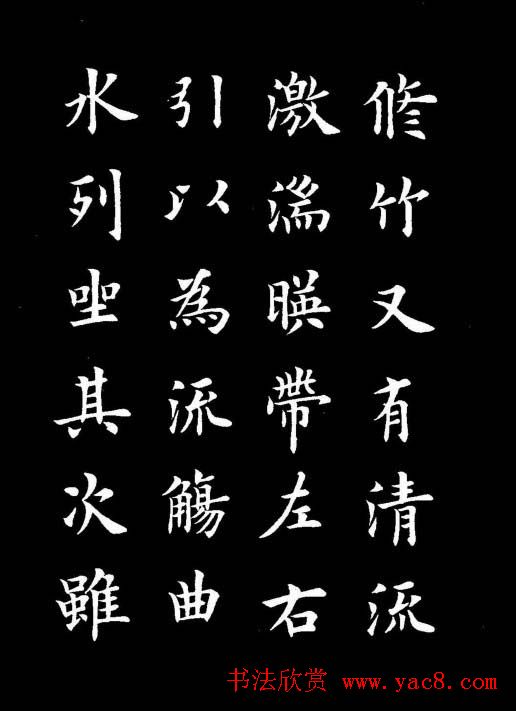 修竹又有清流
激湍暎帶左右
引以為流觴曲
水列坐其次雖
书法欣赏 www.yac8.com